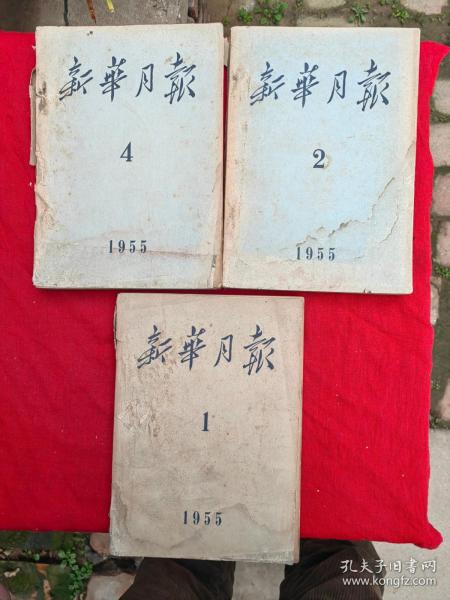 新華月報
4
1955
新華月報
2
1955
新華月報
1
1955
孔夫子旧书网
www.kongfz.com